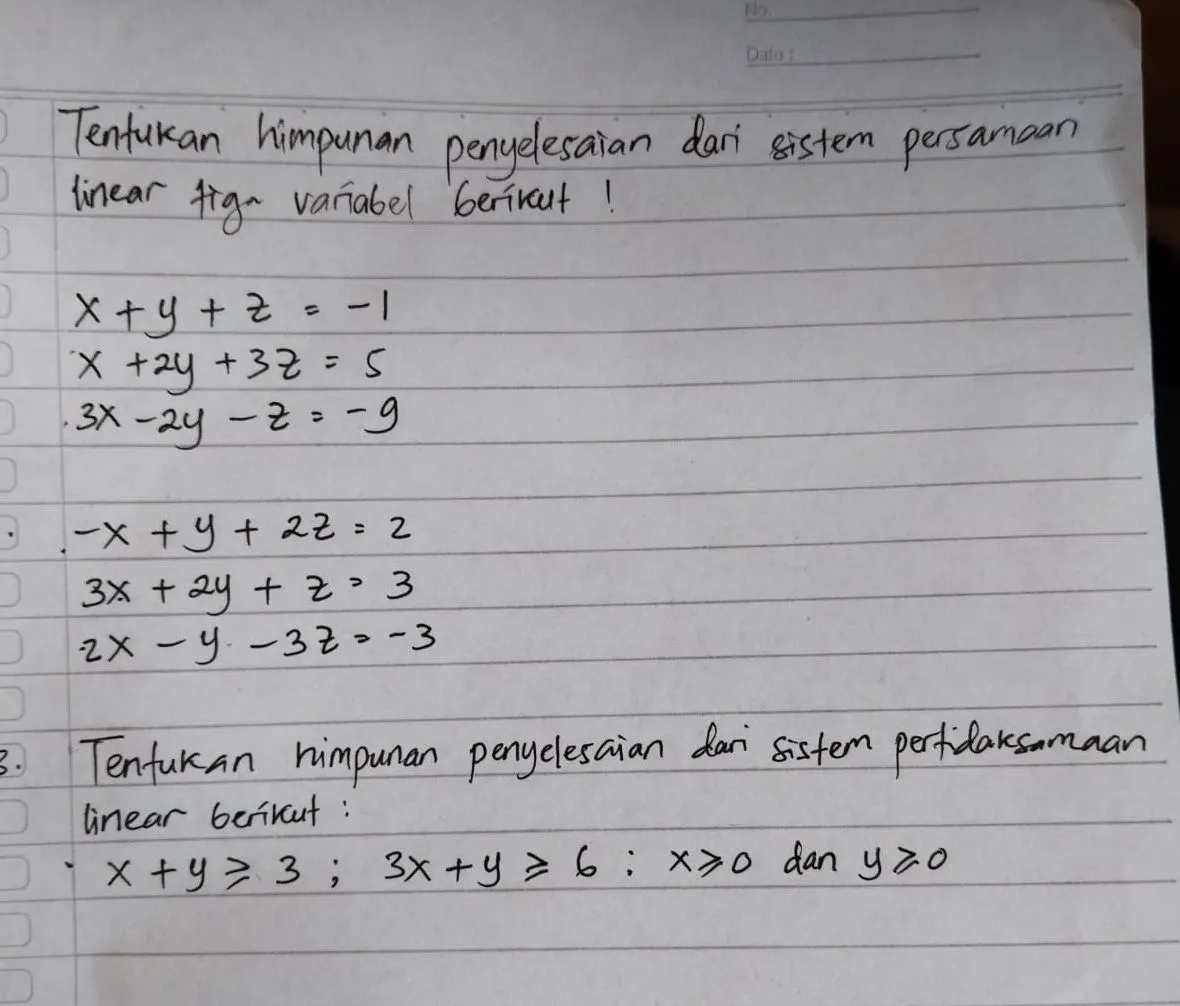 No.
Date:
Tentukan himpunan penyelesaian dari sistem persamaan
linear tiga variabel berikut !
x + y + z = -1
x + 2y + 3z = 5
3x - 2y - z = -9
. -x + y + 2z = 2
3x + 2y + z = 3
2x - y - 3z = -3
3. Tentukan himpunan penyelesaian dari sistem pertidaksamaan
linear berikut :
x + y ≥ 3 ; 3x + y ≥ 6 : x ≥ 0 dan y ≥ 0